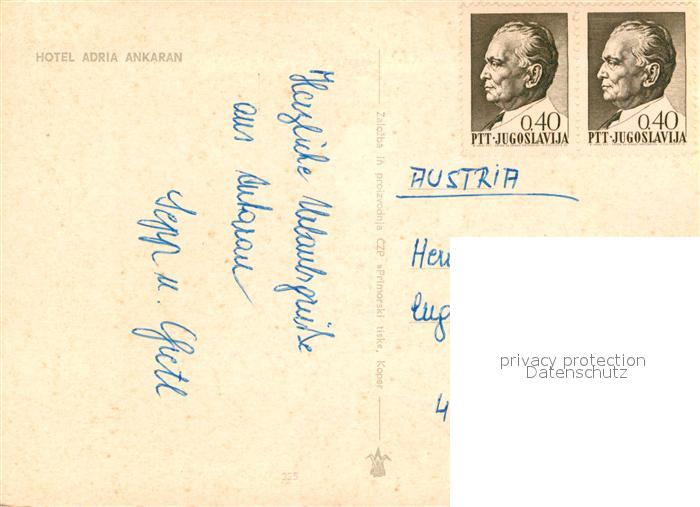 HOTEL ADRIA ANKARAN
Herzliche Urlaubsgrüße
aus Ankaran
Sepp u. Gretl
225
Založba in proizvodnja ČZP »Primorski tisk«, Koper
0,40
PTT·JUGOSLAVIJA
0,40
PTT·JUGOSLAVIJA
AUSTRIA
Herr
Eug
4
privacy protection
Datenschutz